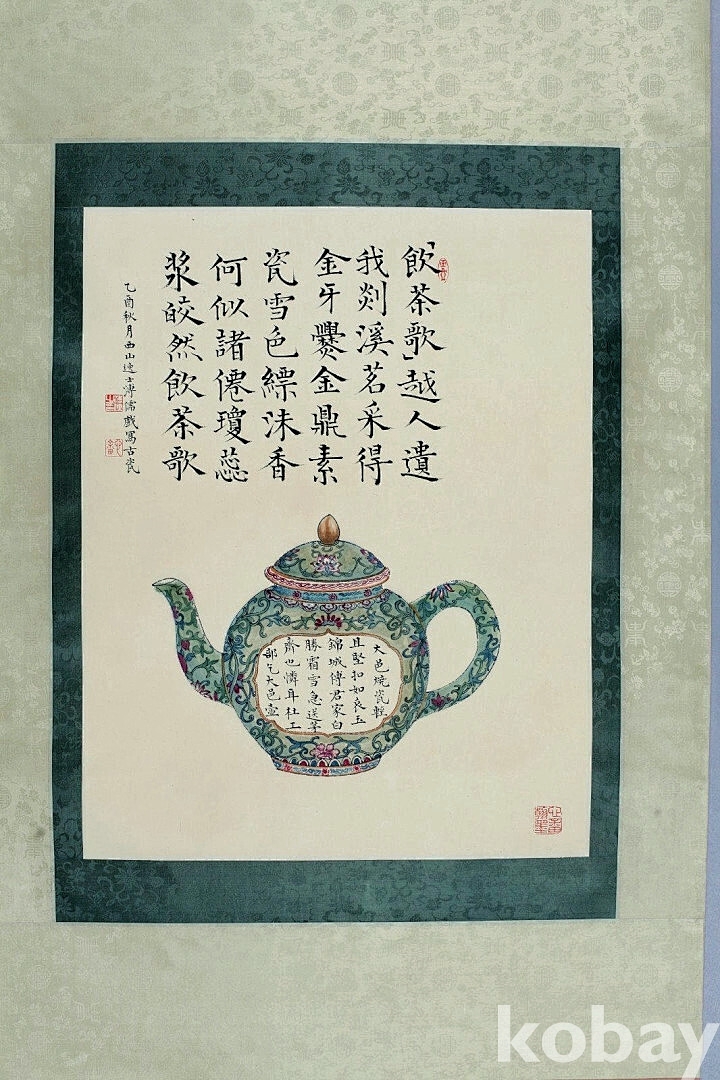 「飲茶歌」越人遺
我剡溪茗采得
金牙爨金鼎素
瓷雪色縹沫香
何似諸僊瓊蕊
漿皎然飲茶歌
乙酉秋月西山逸士溥儒戲寫古瓷
大邑燒瓷輕
且堅扣如哀玉
錦城傳君家白
勝霜雪急送茅
齋也憐耳杜工
部乞大邑
kobay